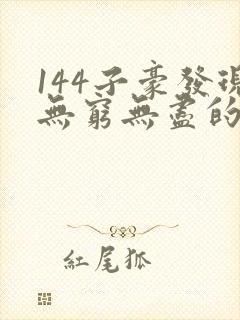 144子豪發現
無窮無盡的
紅尾狐